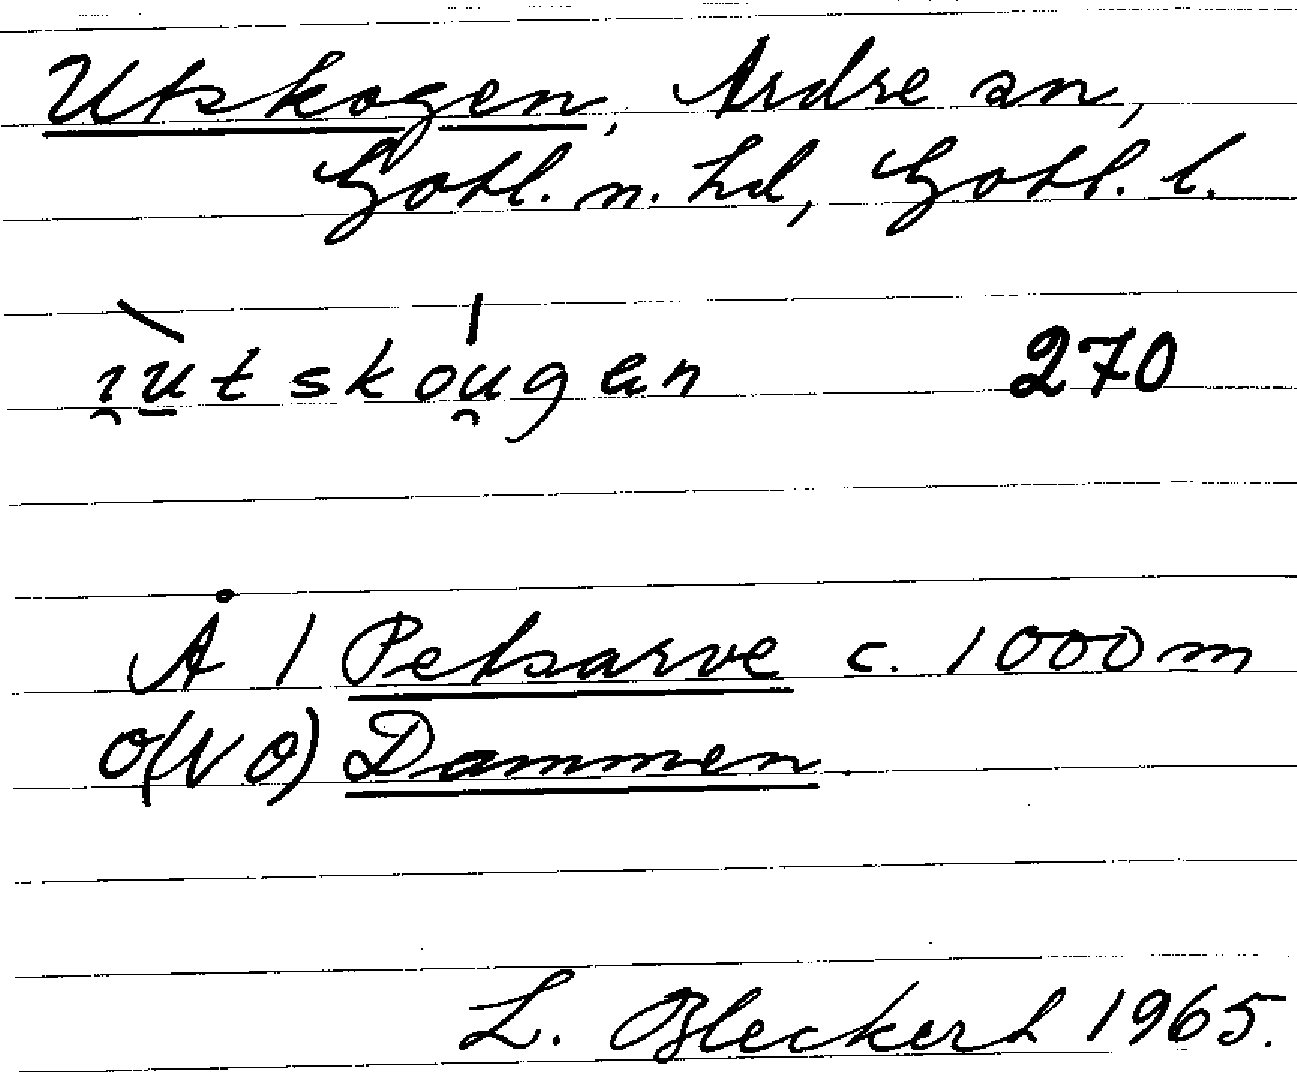 Utskogen, Ardre sn,
Gotl. n. hd, Gotl. l.
ı̯u̱tskou̯gan 270
Å 1 Petsarve c. 1000 m
O(NO) Dammen.
L. Bleckert 1965.